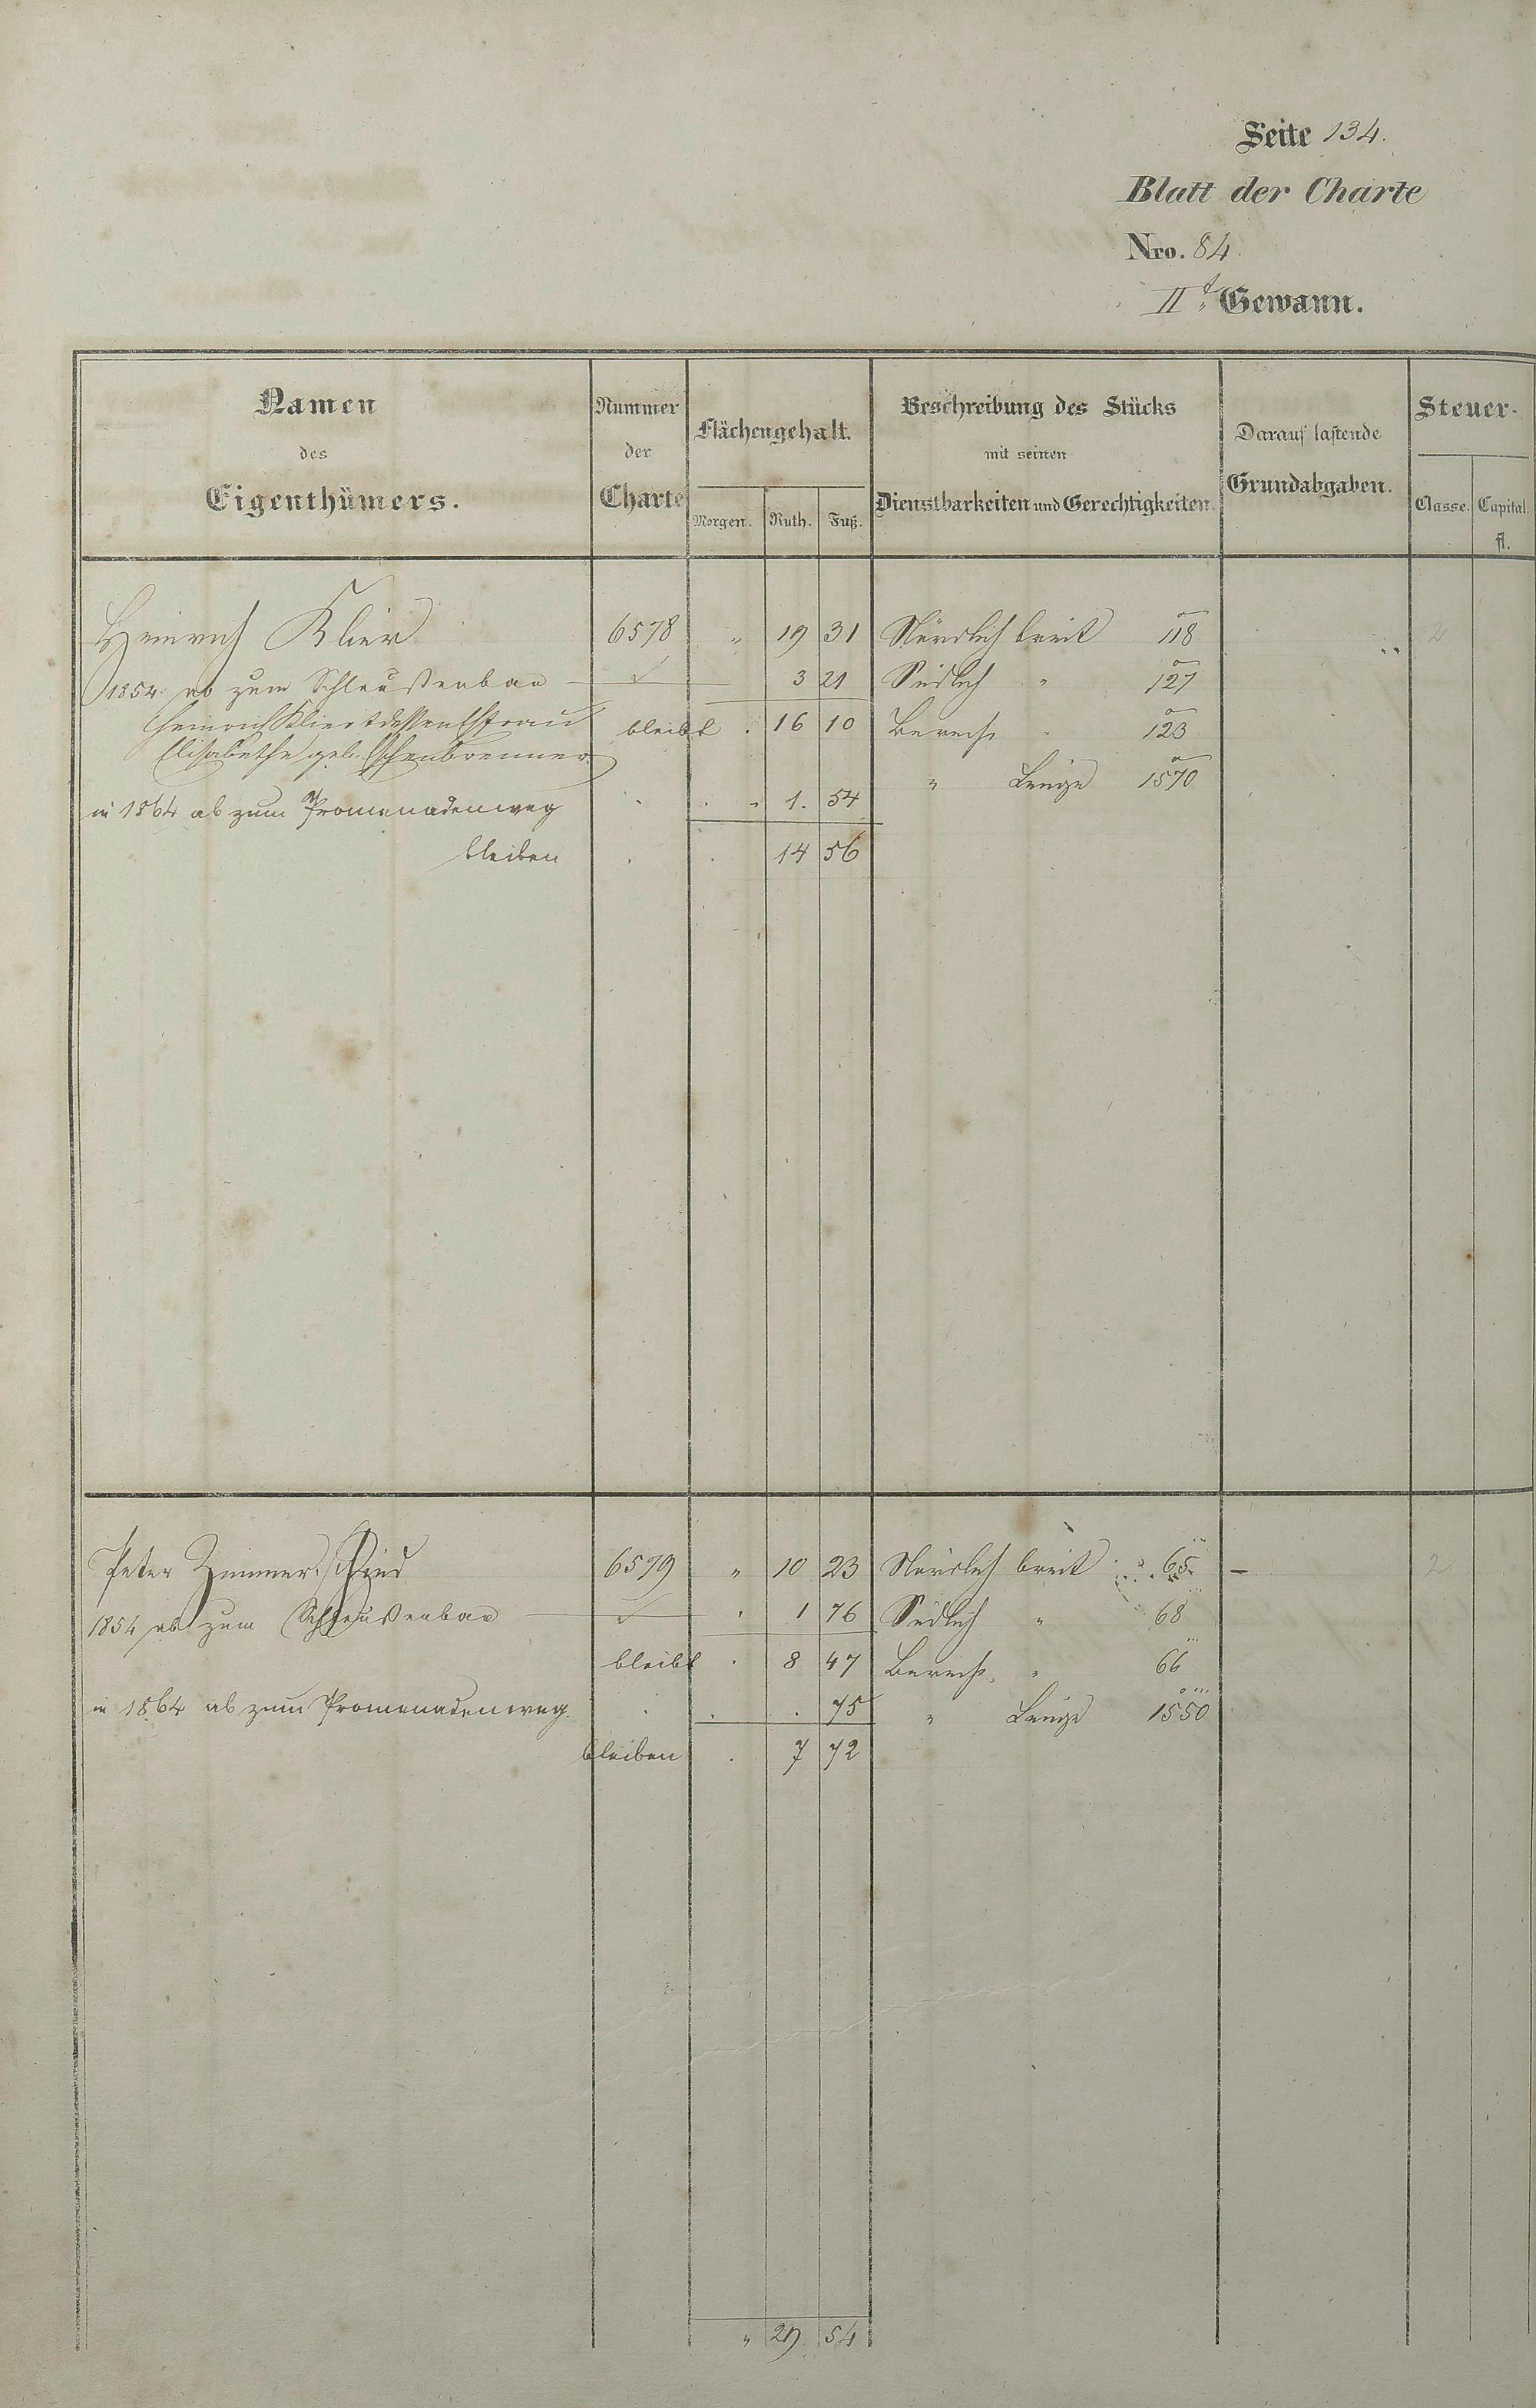 Seite 134.
Blatt der Charte
Nro. 84.
IIt. Gewann.
Namen des Eigenthümers.
Nummer der Charte
Flächengehalt.
Morgen. Ruth. Fuß.
Beschreibung des Stücks mit seinen Dienstbarkeiten und Gerechtigkeiten.
Darauf lastende Grundabgaben.
Steuer-
Classe. Capital. fl.
Heinrich Klier 6578 " 19 31 Nördlich breit 118 2
1854 ab zum Schleußenbau 3 21 Südlich " 127
Heinrich Klier + dessen Ehefrau bleibt . 16 10 Berech. " 123
Elisabethe geb. Eschenbrenner
" Länge 1570
in 1864 ab zum Promenadenweg . . " 1. 54
bleiben . . 14 56
Peter Zimmer. 6579 " 10 23 Nördlich breit 65 – 2
1854 ab zum Schleußenbau . 1 76 Südlich " 68
bleibt . 8 47 Berech. " 66
in 1864 ab zum Promenadenweg. . . . 75 " Länge 1550
bleiben . 7 72
" 29 54